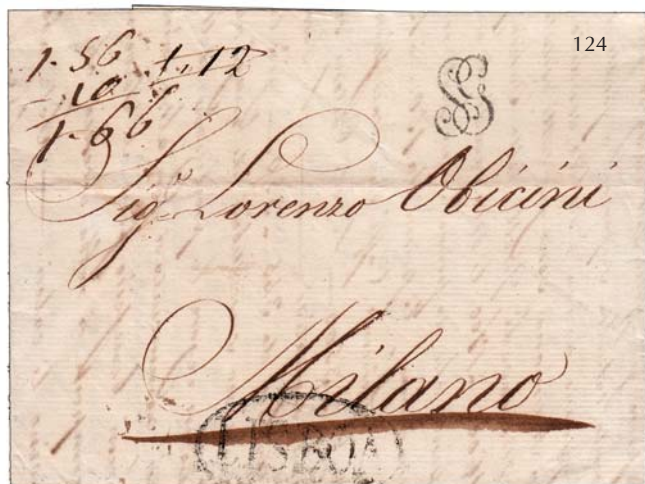 124
1-56 1,12
10
1-66
Sig.r Lorenzo Obicini
Milano
LISBOA